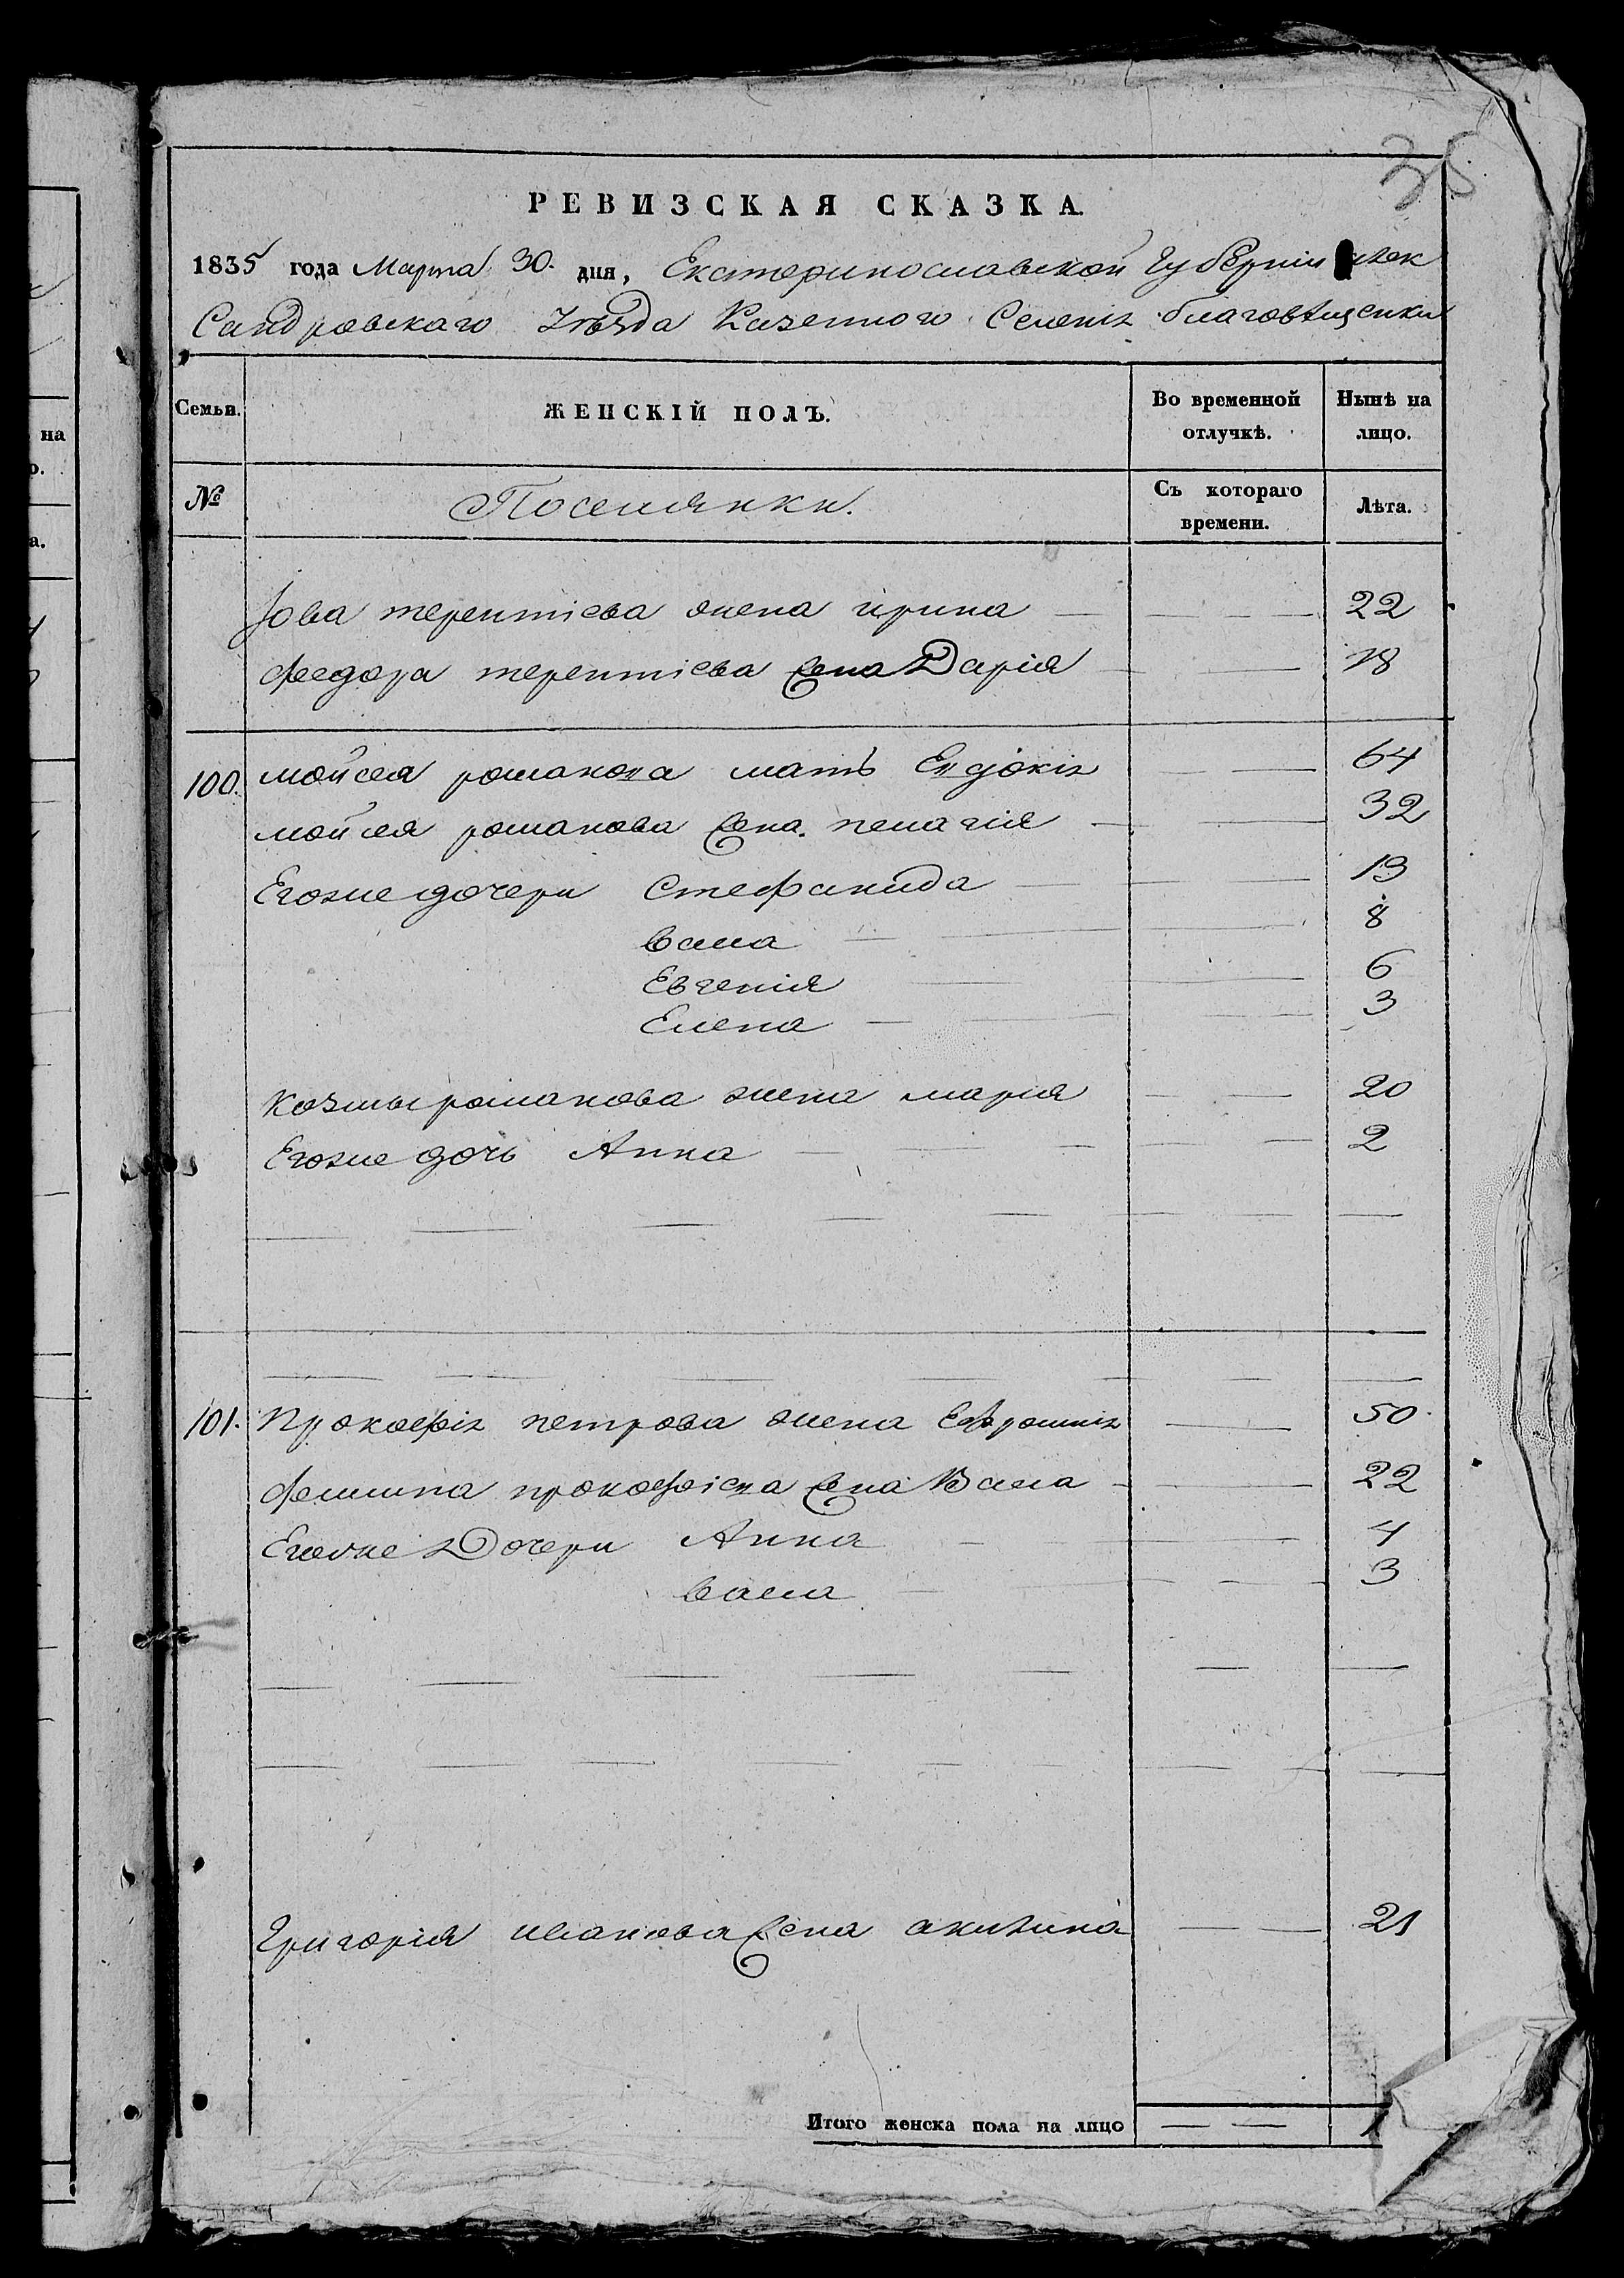 на
о.
а.
35
РЕВИЗСКАЯ СКАЗКА.
1835 года Марта 30. дня, Екатеринославской Губернїи Алек
Сандровскаго Уѣзда Казенного Селенія благовѣщенки
Семьи. ЖЕНСКІЙ ПОЛЪ. Во временной отлучкѣ. Нынѣ на лицо.
№ Поселянки. Съ котораго времени. Лѣта.
Іова терентіева жена ирина 22
Феодора терентіева жена Дарія 18
100. мойсея романова мать Евдокія 64
мойсея романова жена пелагія 32
Егоже дочери Стефанида 13
васса 8
Евгенія 6
Елена 3
Козмы романова жена марія 20
Егоже дочь Анна 2
101. Прокофія петрова жена Ефросинія 50
прокофіева жена Васса 22
Егоже Дочери Анна 4
васса 3
Григорія иванова жена акилина 21
Итого женска пола на лицо